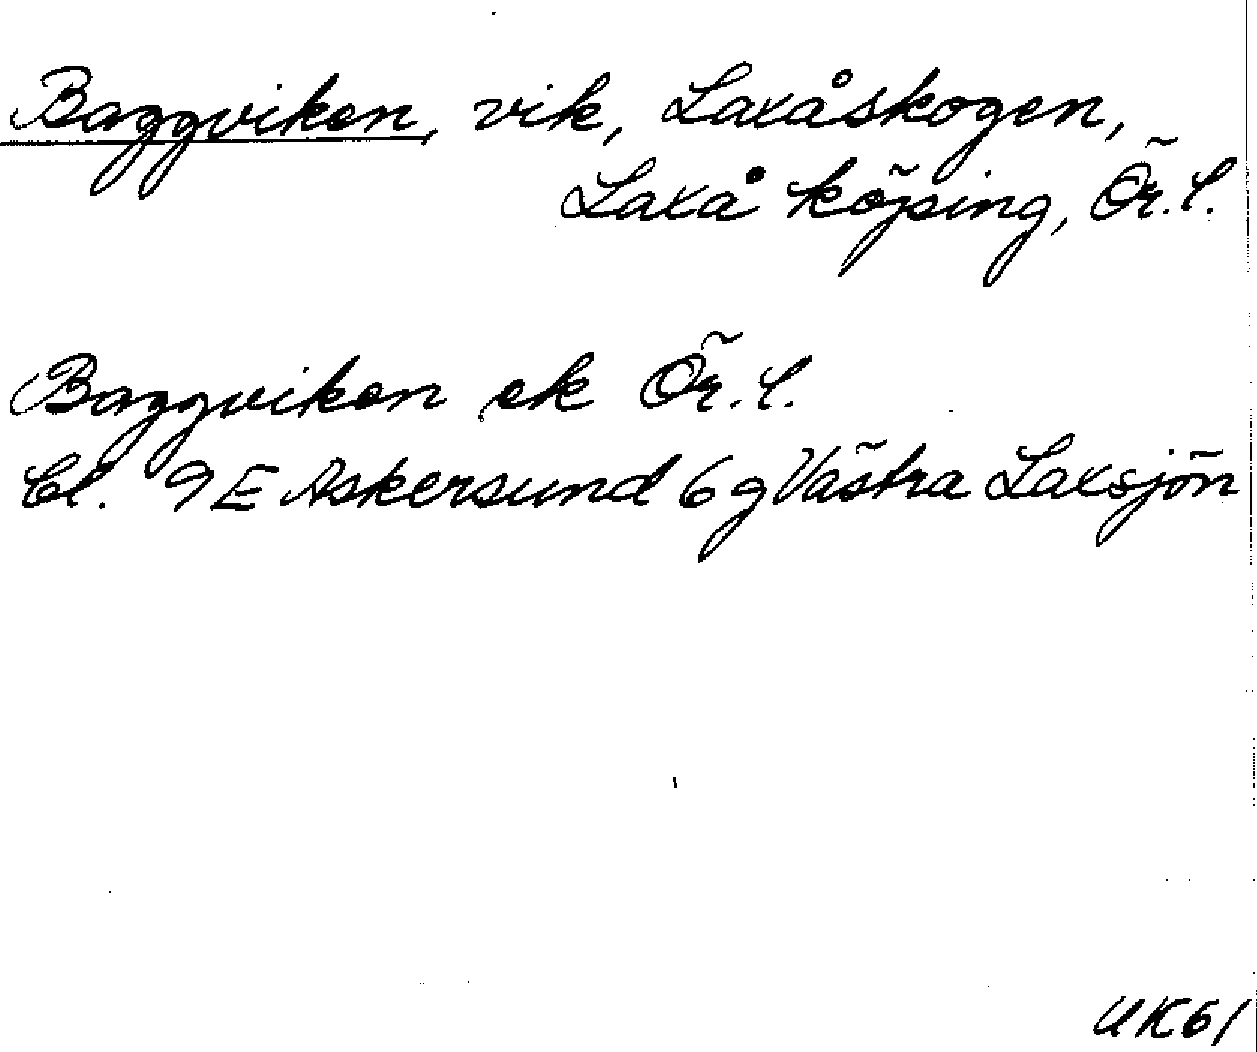 Baggviken, vik, Laxåskogen,
Laxå köping, Ör. l.
Baggviken ek Ör. l.
bl. 9E Askersund 6g Västra Laxsjön
UK61